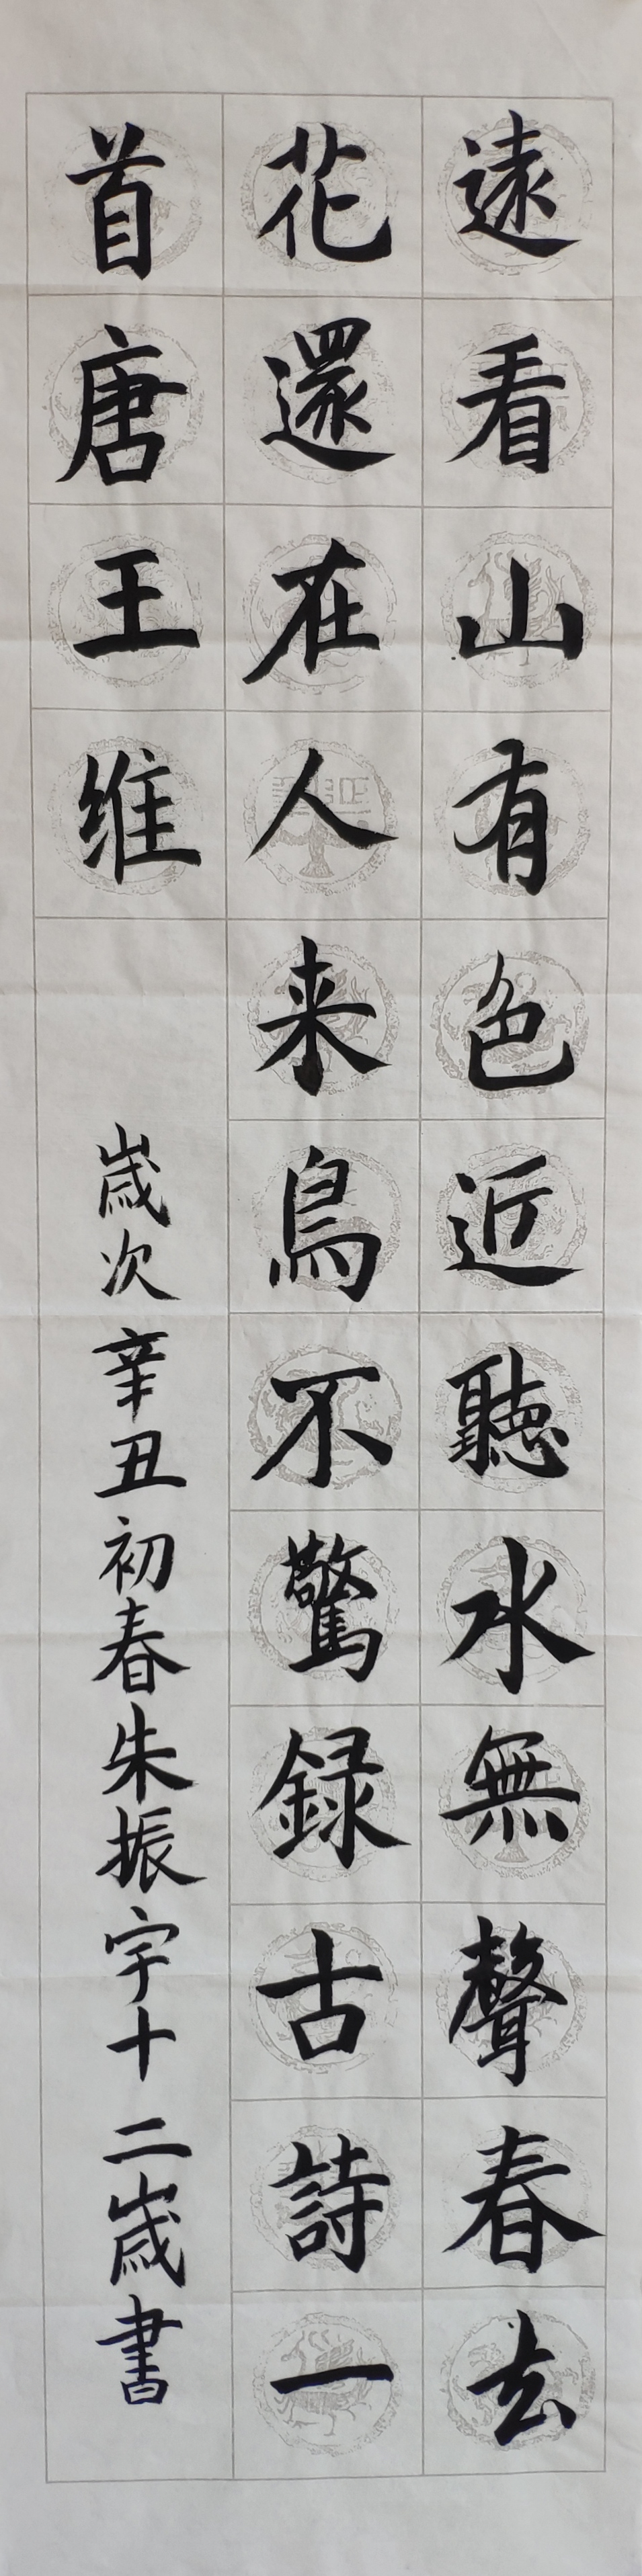 遠看山有色近聽水無聲春去
花還在人来鳥不驚録古詩一
首唐王维
歲次辛丑初春朱振宇十二歲書